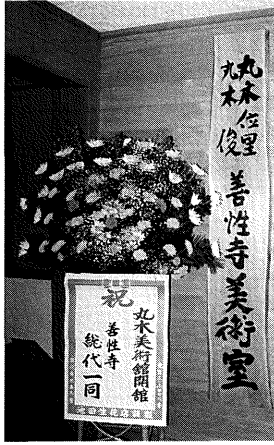 丸木位里
丸木俊
善性寺美術室
祝
丸木美術館開館
善性寺
総代一同